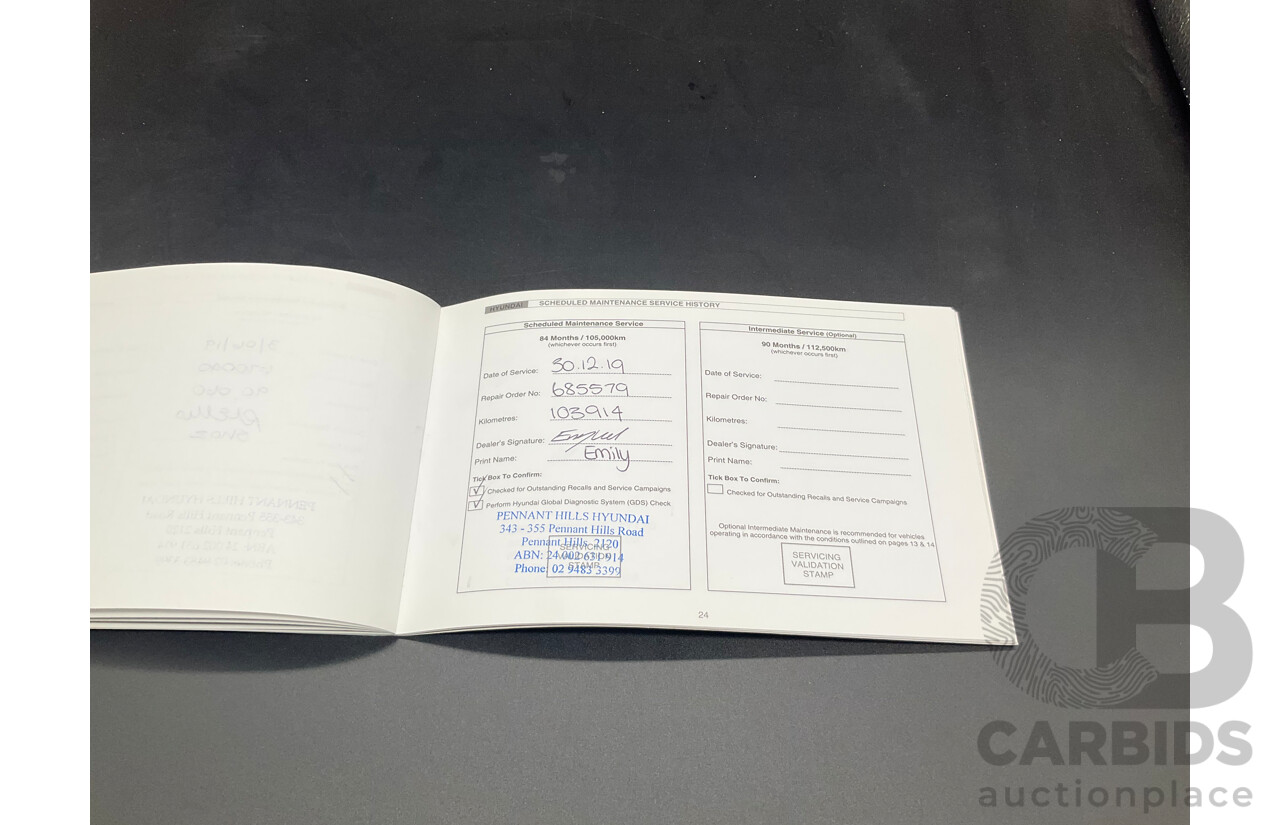 HYUNDAI SCHEDULED MAINTENANCE SERVICE HISTORY
Scheduled Maintenance Service
84 Months / 105,000km
(whichever occurs first)
Date of Service: 30.12.19
Repair Order No: 685579
Kilometres: 103914
Dealer's Signature:
Print Name: Emily
Tick Box To Confirm:
Checked for Outstanding Recalls and Service Campaigns
Perform Hyundai Global Diagnostic System (GDS) Check
PENNANT HILLS HYUNDAI
343 - 355 Pennant Hills Road
Pennant Hills 2120
ABN: 24 002 631 914
Phone: 02 9483 3399
SERVICING
VALIDATION
STAMP
Intermediate Service (Optional)
90 Months / 112,500km
(whichever occurs first)
Date of Service:
Repair Order No:
Kilometres:
Dealer's Signature:
Print Name:
Tick Box To Confirm:
Checked for Outstanding Recalls and Service Campaigns
Optional Intermediate Maintenance is recommended for vehicles
operating in accordance with the conditions outlined on pages 13 & 14
SERVICING
VALIDATION
STAMP
24
CB
CARBIDS
auctionplace